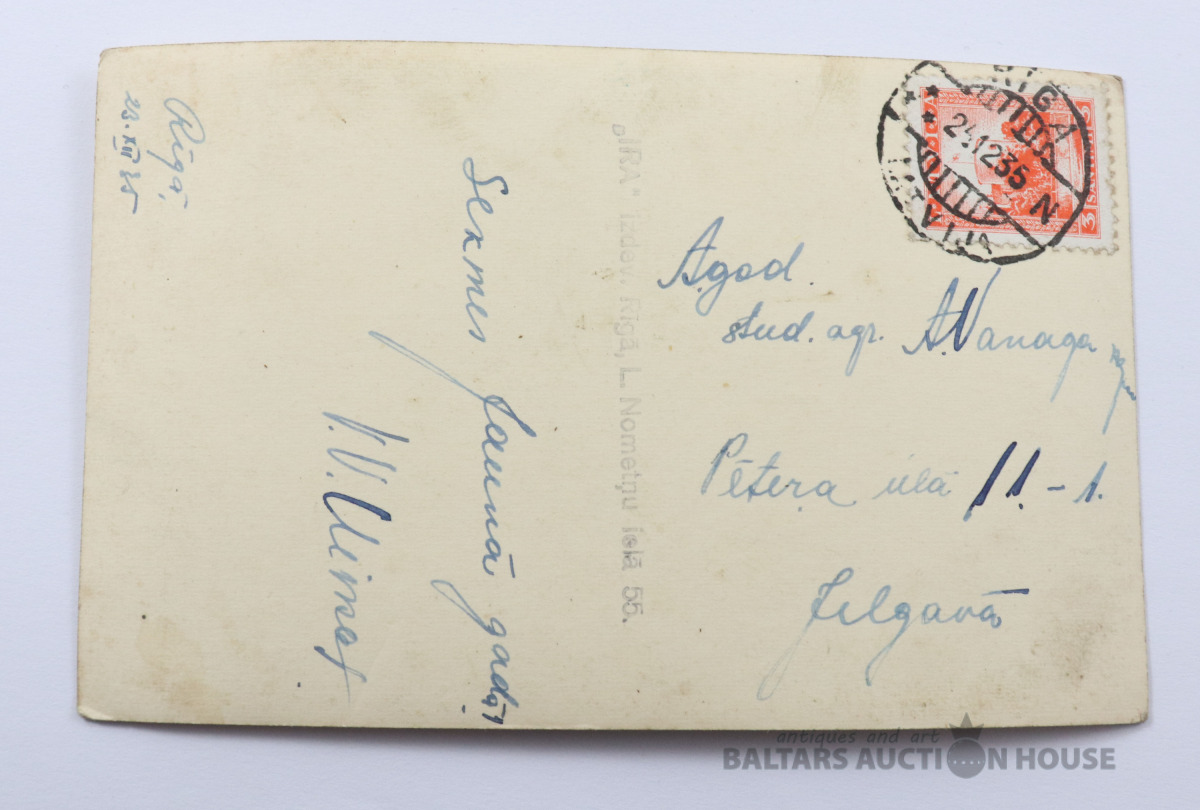 Rīgā,
23. XII 35
Sekmes Jaunā gadā!
"IRA" izdev. Rīgā, L. Nometņu ielā 55.
RIGA
24 12 35
N
LATVIJA
LATVIJA
3 SANTIMI 3
A.god.
stud. agr. A. Vanaga
Pētera ielā 11 - 1.
Jelgavā
antiques and art
BALTARS AUCTION HOUSE